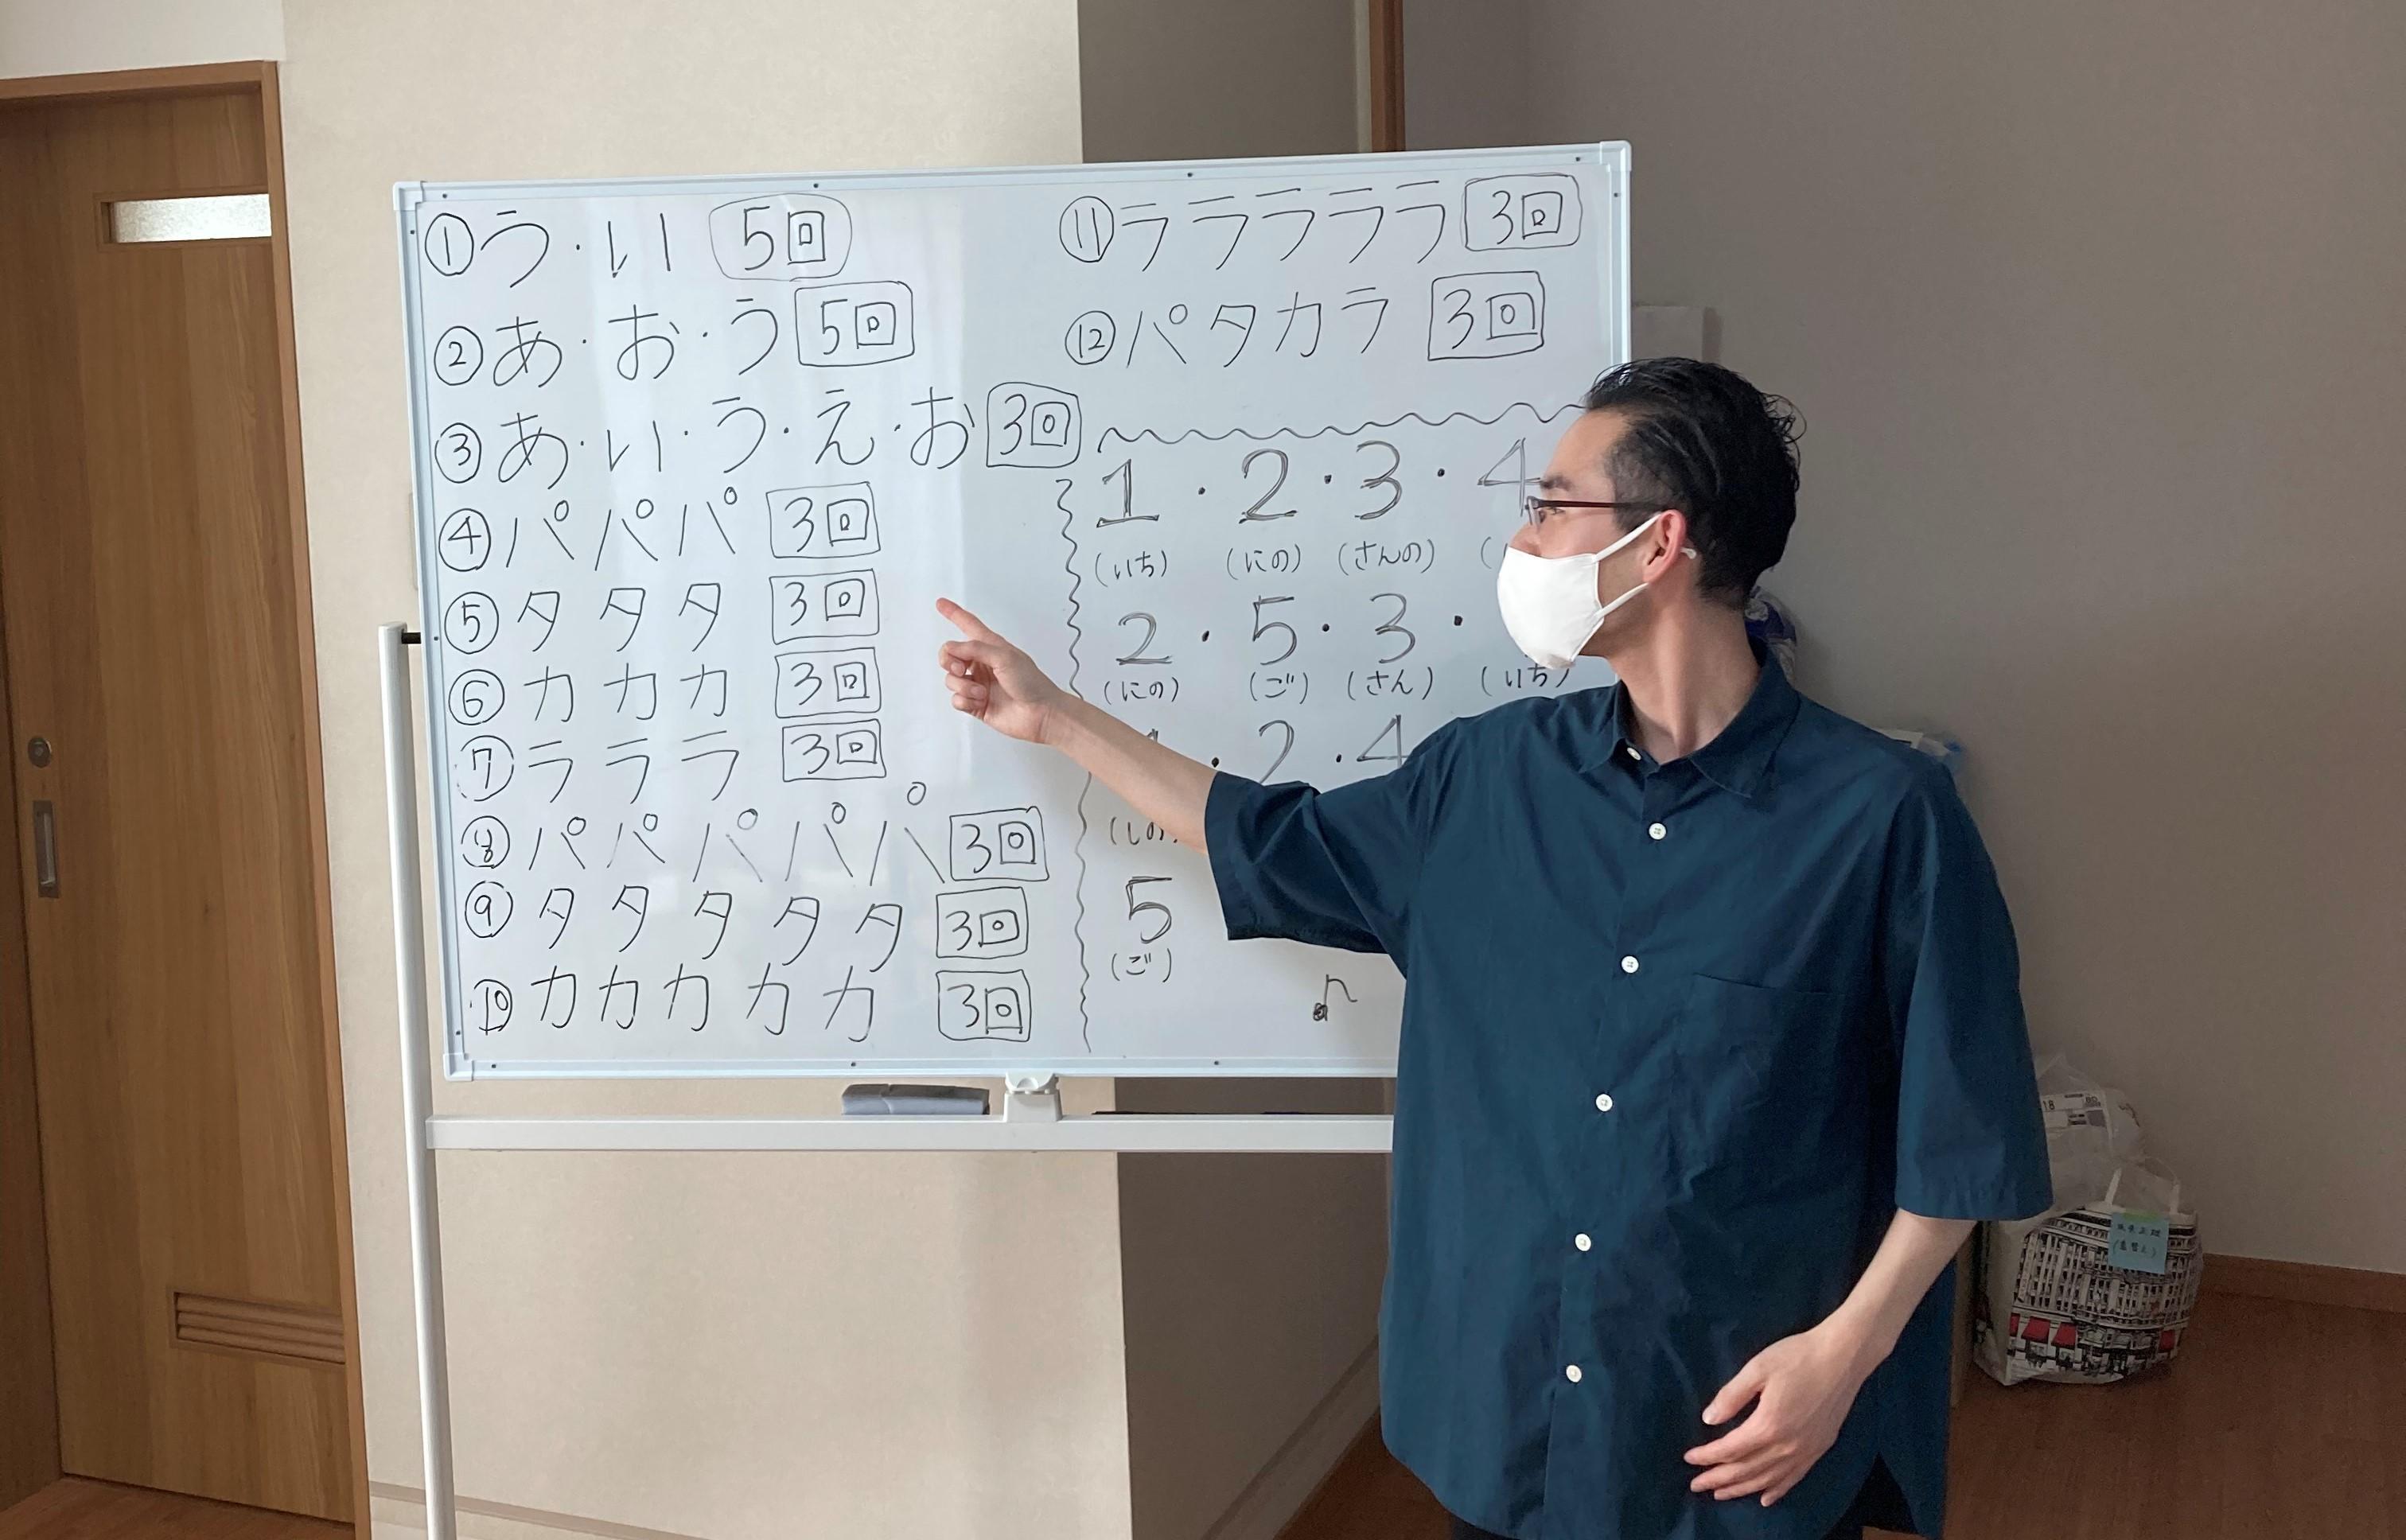 ①う・い 5回
②あ・お・う 5回
③あ・い・う・え・お 3回
④パパパ 3回
⑤タタタ 3回
⑥カカカ 3回
⑦ラララ 3回
⑧パパパパパ 3回
⑨タタタタタ 3回
⑩カカカカカ 3回
⑪ラララララ 3回
⑫パタカラ 3回
1・2・3・4
(いち) (にの) (さんの)
2・5・3・
(にの) (ご) (さん) (いち)
・2・4
(しの
5
(ご)